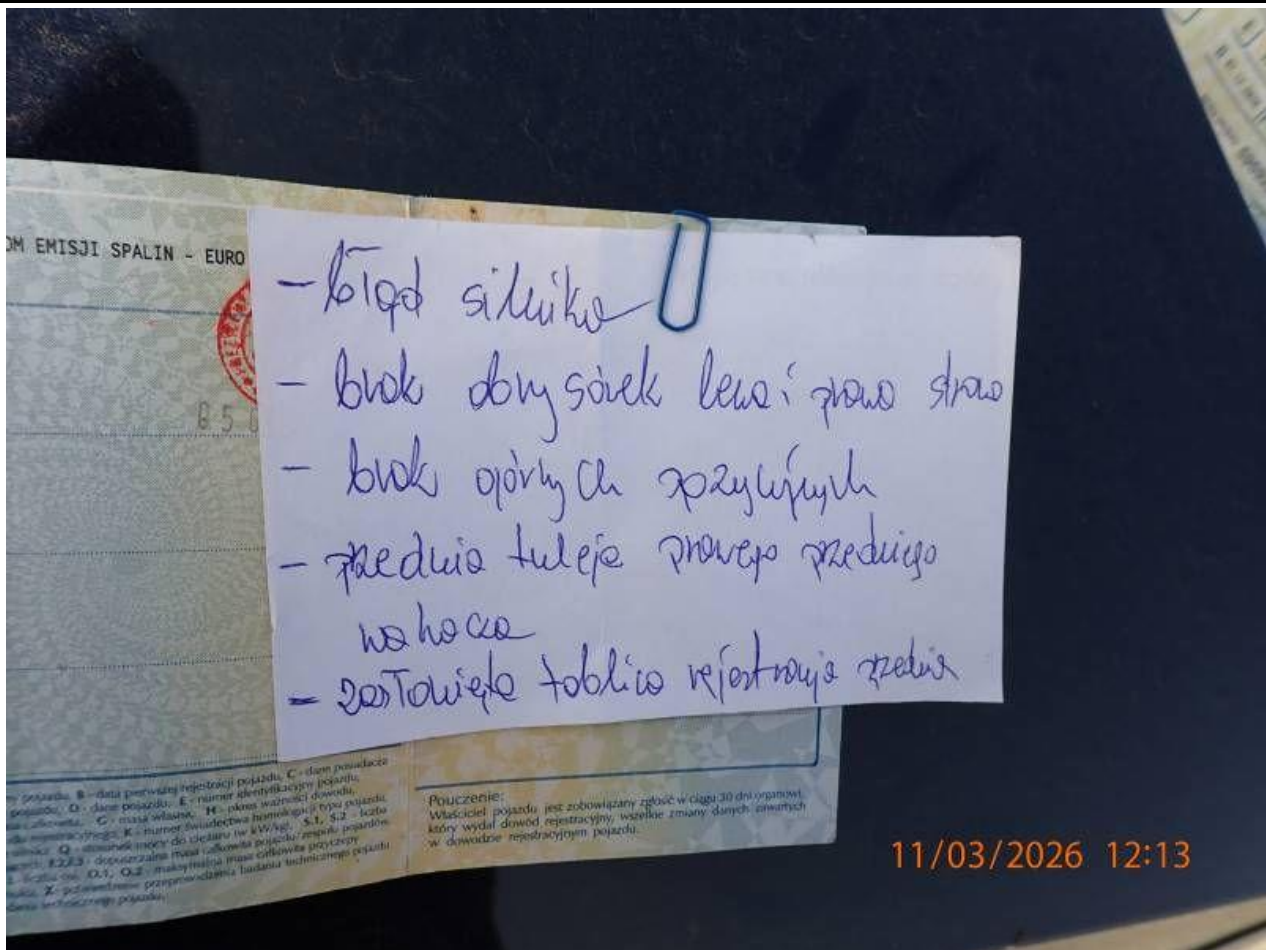 OM EMISJI SPALIN - EURO
- błąd silnika
- brak obrysówek lewa i prawa strona
- brak górnych pozycyjnych
- przednia tuleja prawego przedniego
wahacza
- zasłonięta tablica rejestracyja przednia
650
pojazdu, B - data pierwszej rejestracji pojazdu, C - dane posiadacza
pojazdu, D - dane pojazdu, E - numer identyfikacyjny pojazdu,
G - masa własna, H - okres ważności dowodu,
K - numer świadectwa homologacji typu pojazdu,
Q - stosunek mocy do ciężaru (w kW/kg), S.1, S.2 - liczba
F.2, F.3 - dopuszczalna masa całkowita pojazdu/zespołu pojazdów
O.1, O.2 - maksymalna masa całkowita przyczepy
Z - potwierdzenie przeprowadzenia badania technicznego pojazdu
badania technicznego pojazdu,
Pouczenie:
Właściciel pojazdu jest zobowiązany zgłosić w ciągu 30 dni organowi,
który wydał dowód rejestracyjny, wszelkie zmiany danych zawartych
w dowodzie rejestracyjnym pojazdu.
11/03/2026 12:13